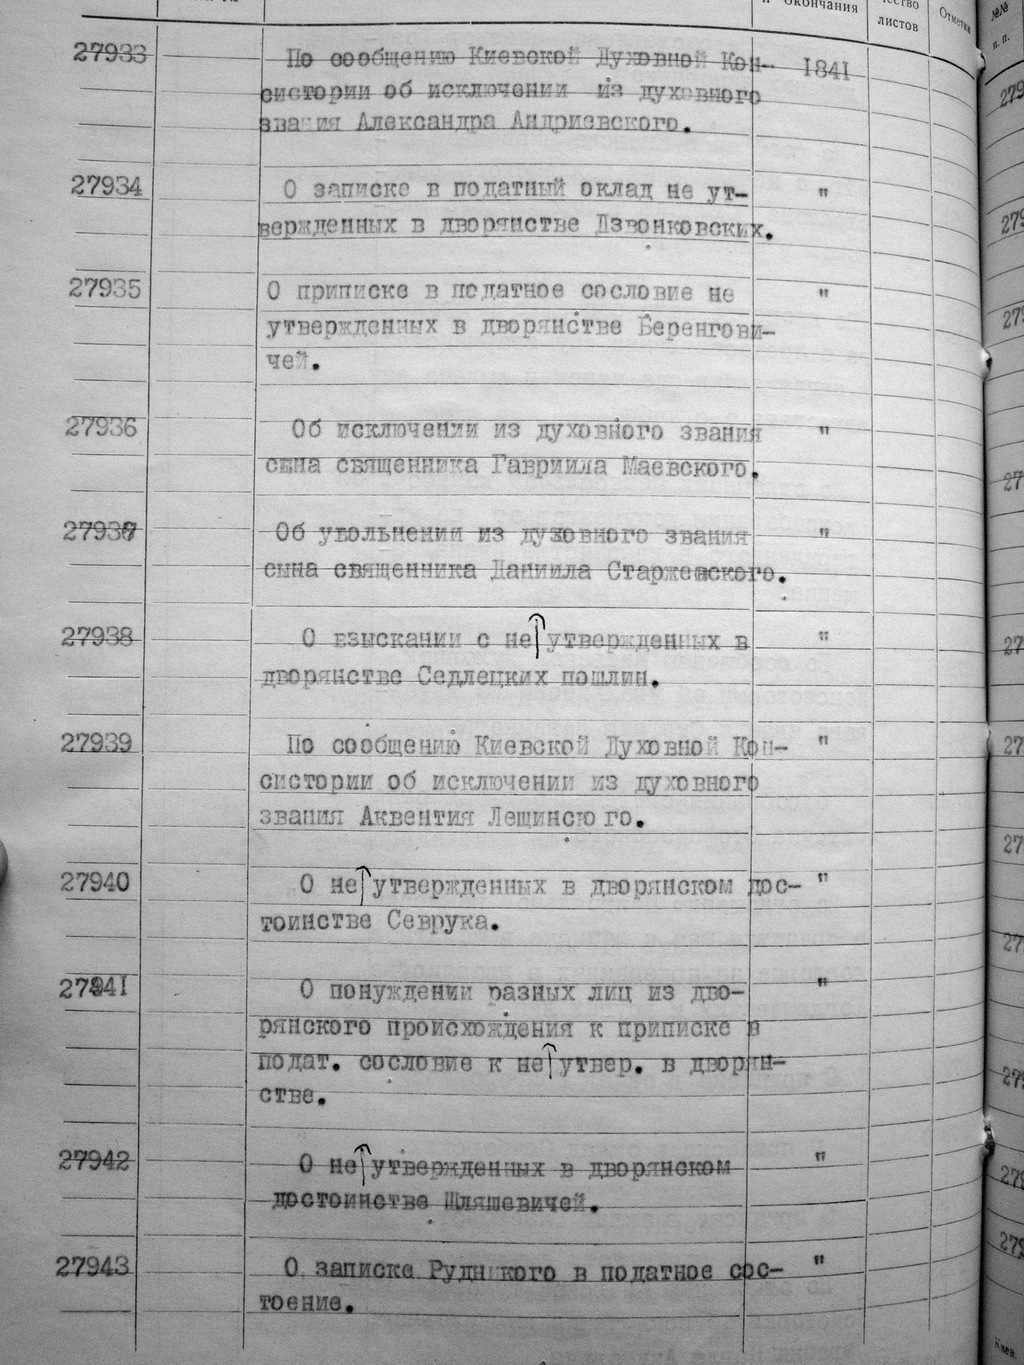 и окончания
листов
Отметки
№№
п. п.
27933 По сообщению Киевской Духовной Кон- 1841
систории об исключении из духовного
звания Александра Андриевского.
27934 О записке в податный оклад не ут- "
вержденных в дворянстве Дзвонковских.
27935 О приписке в податное сословие не "
утвержденных в дворянстве Беренгови-
чей.
27936 Об исключении из духовного звания "
сына священника Гавриила Маевского.
27937 Об увольнении из духовного звания "
сына священника Даниила Старжевского.
27938 О взыскании с не утвержденных в "
дворянстве Седлецких пошлин.
27939 По сообщению Киевской Духовной Кон- "
систории об исключении из духовного
звания Аквентия Лещинсю го.
27940 О не утвержденных в дворянском дос- "
тоинстве Севрука.
27941 О понуждении разных лиц из дво- "
рянского происхождения к приписке в
подат. сословие к не утвер. в дворян-
стве.
27942 О не утвержденных в дворянском "
достоинстве Шляшевичей.
27943 О записке Рудницкого в податное сос- "
тоение.